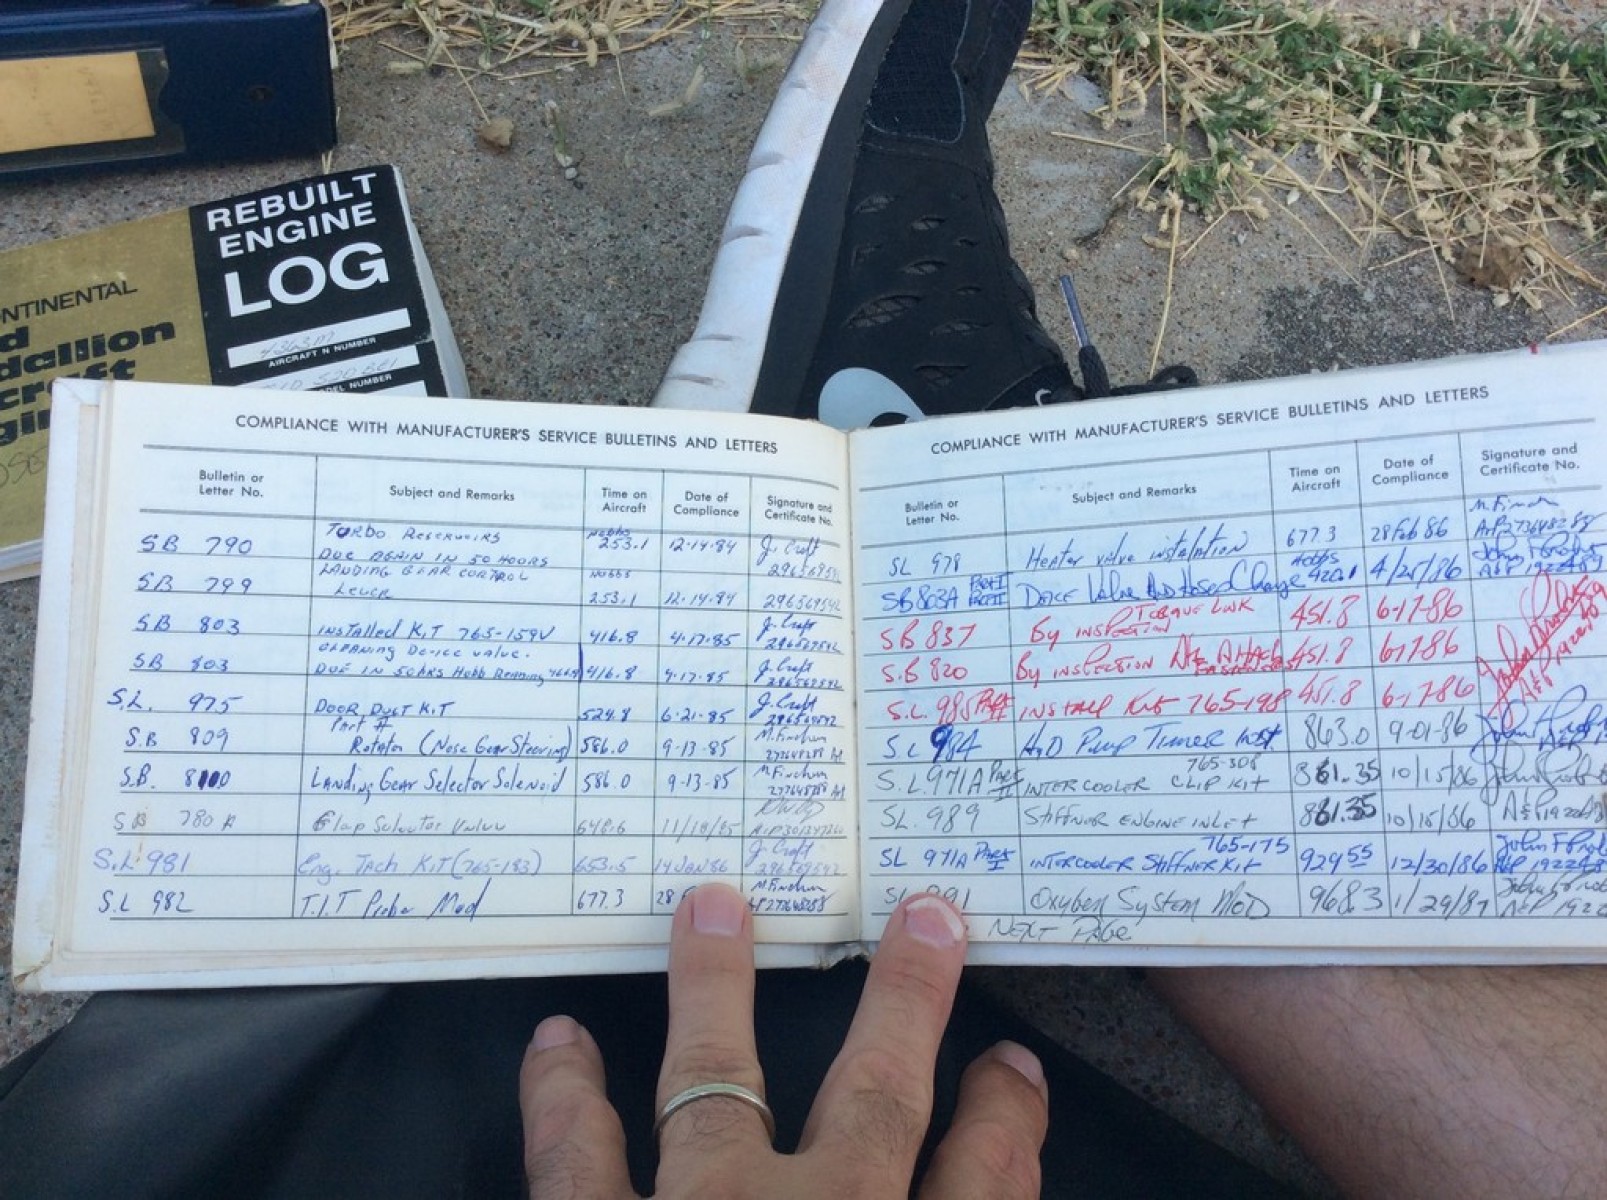 REBUILT
ENGINE
LOG
AIRCRAFT N NUMBER
NUMBER
NTINENTAL
COMPLIANCE WITH MANUFACTURER'S SERVICE BULLETINS AND LETTERS
Bulletin or Letter No. Subject and Remarks Time on Aircraft Date of Compliance Signature and Certificate No.
SB 790 TURBO RESERVOIRS Hobbs 253.1 12-14-84 J. Croft
DUE AGAIN IN 50 HOURS 296569542
SB 799 LANDING GEAR CONTROL Hobbs
LEVER 253.1 12-14-84 296569542
SB 803 INSTALLED KIT 765-159V 416.8 4-17-85 J. Croft 296569542
SB 803 CLEANING De-ice valve.
DUE IN 50 HRS Hobb Reading 416.8 4-17-85 J. Croft 296569542
S.L. 975 DOOR DUCT KIT 524.8 6-21-85 J. Croft 296569542
S.B 809 Part #
Rotator (Nose Gear Steering) 586.0 9-13-85 M. Fincham
S.B. 810 Landing Gear Selector Solenoid 586.0 9-13-85 M. Fincham
SB 780A Flap Selector Valve 648.6 11/18/85
S.L. 981 Eng. Tach Kit (765-183) 653.5 14 JAN 86 J. Croft 296569542
S.L 982 T.I.T Probe Mod 677.3 28 M. Fincham
COMPLIANCE WITH MANUFACTURER'S SERVICE BULLETINS AND LETTERS
Bulletin or Letter No. Subject and Remarks Time on Aircraft Date of Compliance Signature and Certificate No.
SL 978 Heater valve installation 677.3 28 Feb 86
SB 803A PART I PART II DEICE Valve And Hose Change Hobbs 420.1 4/25/86
SB 837 By INSPECTION TORQUE LINK 451.8 6-17-86
S.B 820 By INSPECTION 451.8 6-17-86
S.L. 985 PART II INSTALL KIT 765-198 451.8 6-17-86
S.L 984 HYD Pump Timer Inst. 863.0 9-01-86
S.L. 971A PART II INTERCOOLER CLIP KIT 765-308 861.35 10/15/86
SL. 989 STIFFNER ENGINE INLET 861.35 10/15/86
SL 971A PART I INTERCOOLER STIFFNER KIT 765-175 929.55 12/30/86
SL 991 Oxygen System MOD 968.3 1/29/87
NEXT PAGE